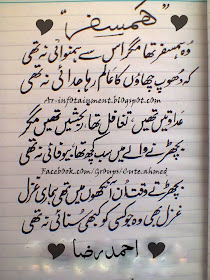 "ھمسفر"
وہ ہمسفر تھا مگر اس سے ہمنوائی نہ تھی
کہ دھوپ چھاؤں کا عالم رہا جدائی نہ تھی
Ar-infotainment.blogspot.com
عداوتیں تھیں، تغافل تھا، رنجشیں تھیں مگر
بچھڑنے والے میں سب کچھ تھا، بیوفائی نہ تھی
Facebook.com/Groups/Cute.ahmed
بچھڑتے وقت ان آنکھوں میں تھی ہماری غزل
غزل بھی وہ جو کسی کو کبھی سنائی نہ تھی
احمد رضا